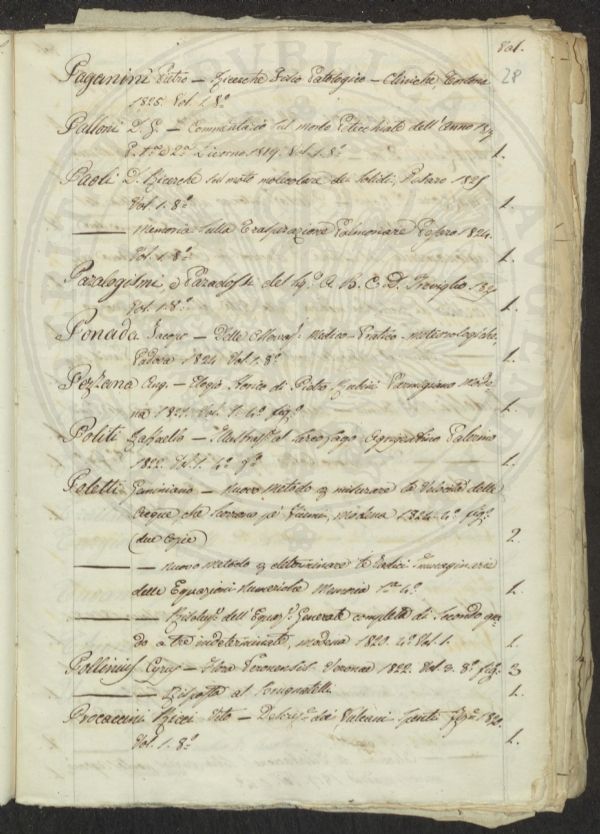 Vol.
28
Paganini Pietro — Ricerche Fisio Patologico — Cliniche Tortona
1825. Vol. 1. 8.º
Palloni D. G. — Commentario sul morbo Petecchiale dell'Anno 1817
P. 1.ª e 2.ª Livorno 1819. Vol. 1. 8.º 1.
Paoli D. Ricerche sul moto molecolare dei solidi, Pesaro 1825
Vol. 1. 8.º 1.
——— Memoria sulla Traspirazione Polmonare Pesaro 1824.
Vol. 1. 8.º 1.
Paralogismi, e Paradossi del A. B. C. D. Treviglio
Vol. 1. 8.º 1.
Ponada Jacopo — Delle Medico-Pratico-Meteorologiche,
Padova 1824 Vol. 1. 8.º 1.
Pezzana Ang. — Elogio Storico di Pietro Rubini Parmigiano Mode-
na 1822. Vol. 1. 4.º fig.º 1.
Politi Raffaello — al Sarcofago Agrigentino Palermo
1822. Vol. 1. 4.º 1.
Poletti Geminiano — Nuovo Metodo p misurare la Velocità delle
Acque, che scorrono pei Fiumi, Modena 1824. 4.º fig.º
(due Copie) 2.
——— — Nuovo Metodo p determinare le Radici Immaginarie
delle Equazioni Numeriche Memoria 1.ª 4.º 1.
——— — dell'Equaz.e Generale completa di Secondo gra-
do a tre indeterminate, Modena 1820. 4.º Vol. 1. 1.
Pollinius Cyrus — Flora Veronensis. Veronae 1822. Vol. 3. 8.º fig. 3
——— — Risposta al Brugnatelli 1.
Procaccini Ricci Vito — Descriz.e dei Vulcani Spenti 1820.
Vol. 1. 8.º 1.